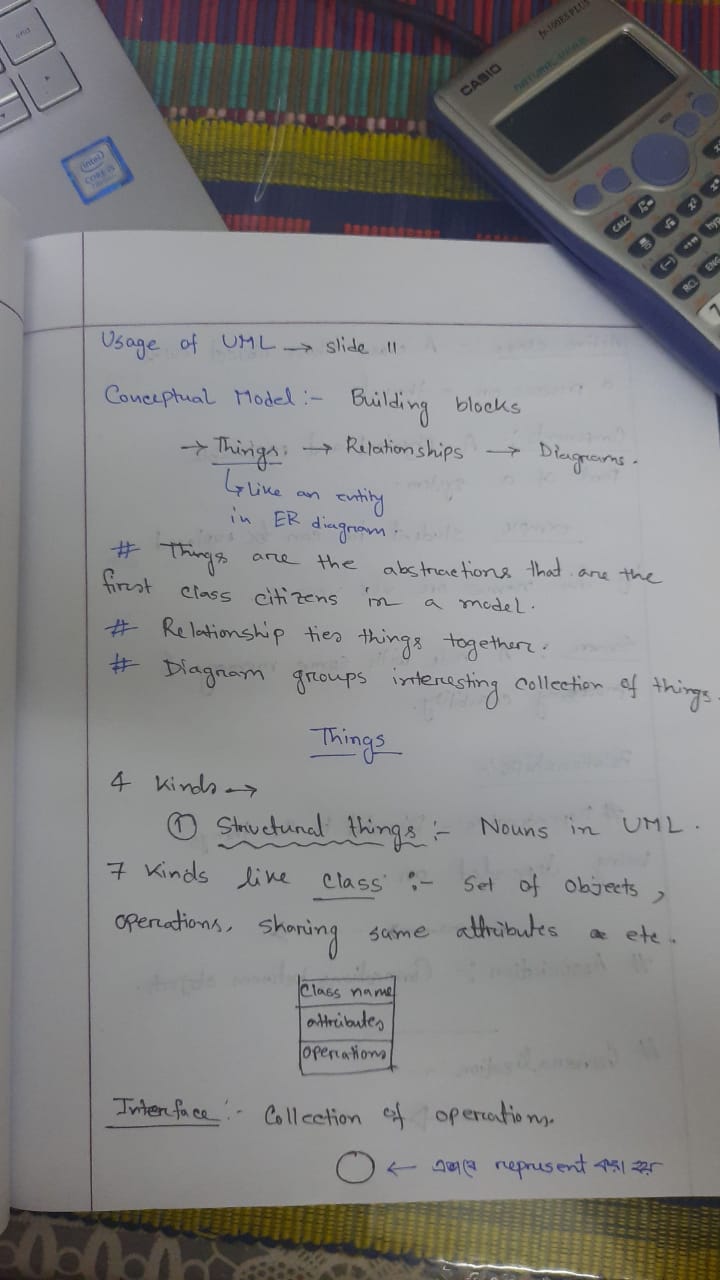 end
intel
CORE i5
CASIO
fx-100ES PLUS
CALC
hyp
(-)
RCL
ENG
7
Usage of UML → slide 11
Conceptual Model :- Building blocks
→ Things. → Relationships → Diagrams.
↳ Like an entity
in ER diagram.
# Things are the abstractions that are the
first class citizens in a model.
# Relationship ties things together.
# Diagram groups interesting collection of things.
Things
4 Kinds →
① Structural things :- Nouns in UML.
7 Kinds like class :- Set of objects,
operations, sharing same attributes etc.
Class name
attributes
operations
Interface :- Collection of operations.
← এভাবে represent করা হয়